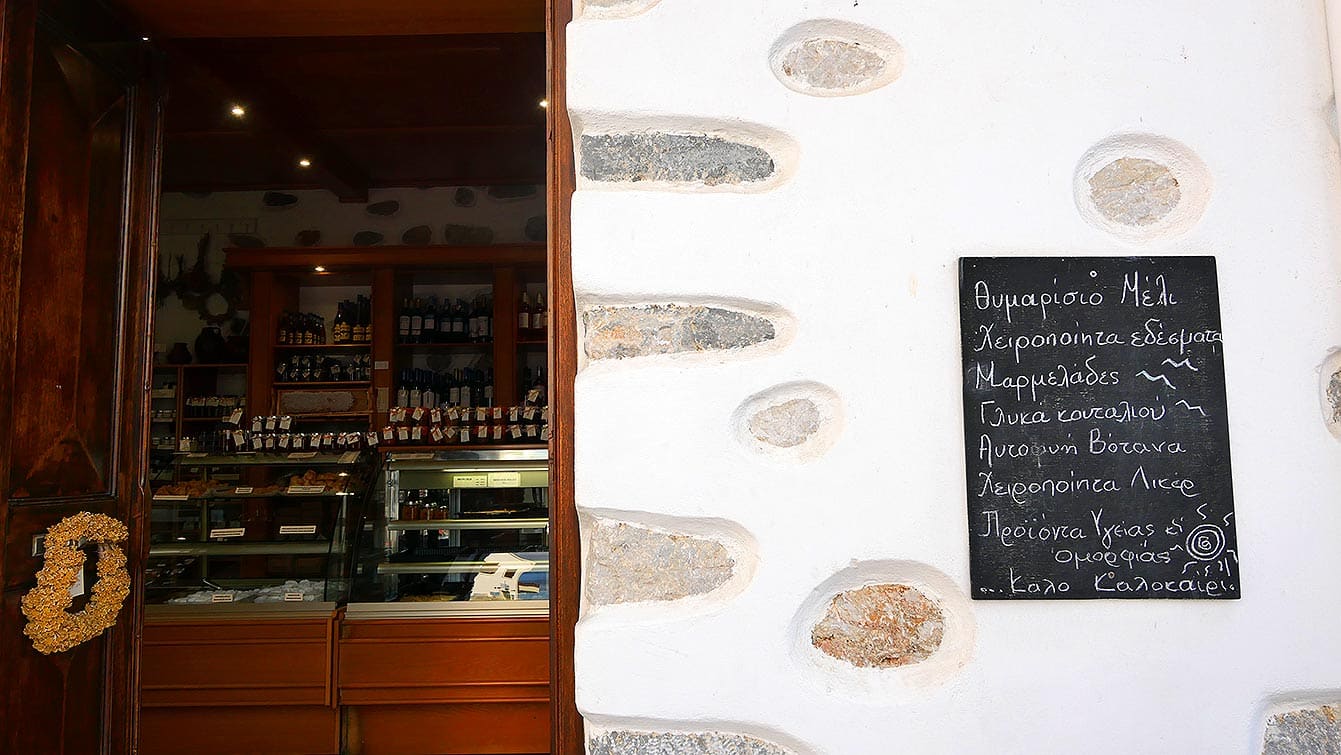 Θυμαρίσιο Μέλι
Χειροποίητα εδέσματα
Μαρμελάδες
Γλυκα κουταλιού
Αυτοφυή Βότανα
Χειροποίητα Λικέρ
Προϊόντα Υγείας &
ομορφιάς
... Καλο Καλοκαίρι..